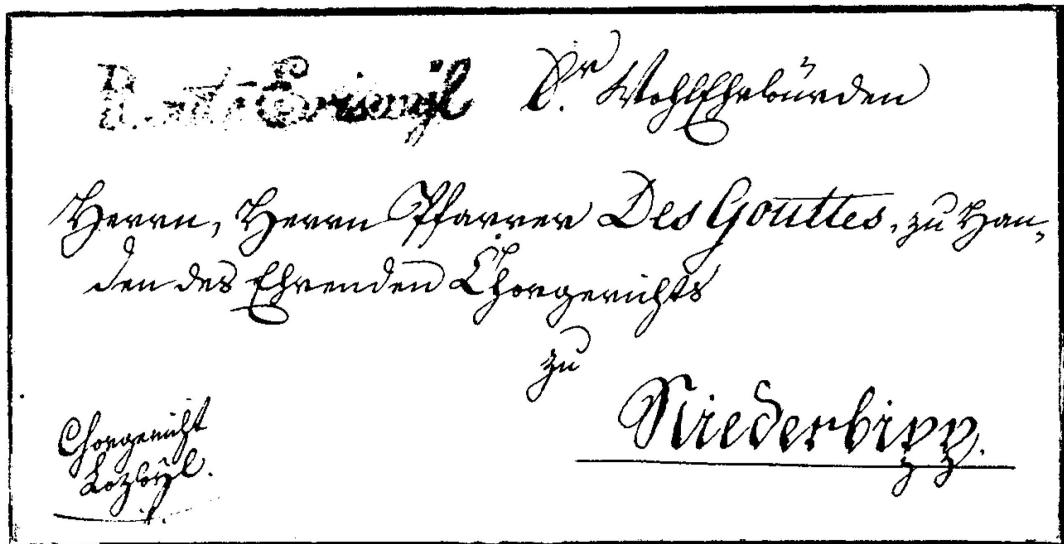 Sr WohlEhrwürden
Herrn, Herrn Pfarrer Des Gouttes, zu Han-
den des Ehrenden Chorgerichts
zu
Niederbipp.
Chorgericht
Lozwÿl.